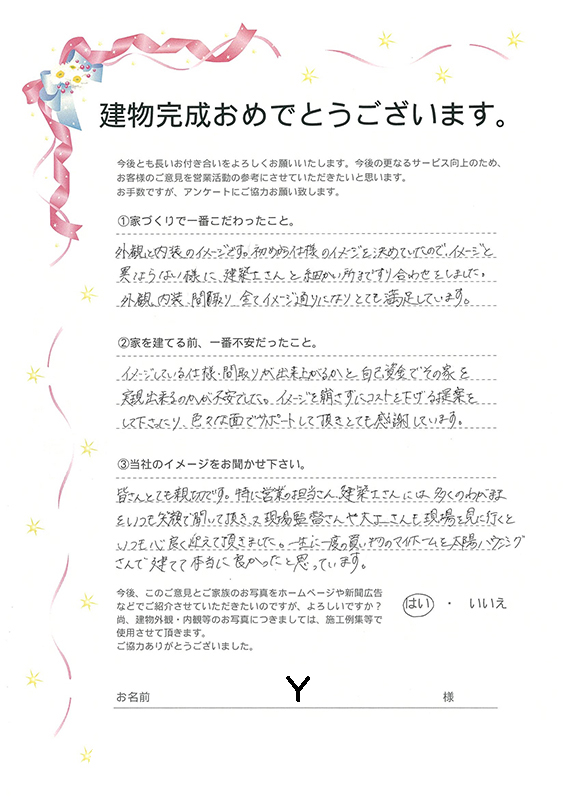 建物完成おめでとうございます。
今後とも長いお付き合いをよろしくお願いいたします。今後の更なるサービス向上のため、
お客様のご意見を営業活動の参考にさせていただきたいと思います。
お手数ですが、アンケートにご協力お願い致します。
①家づくりで一番こだわったこと。
外観と内装のイメージです。初めから仕様のイメージを決めていたので、イメージと
異ならない様に、建築士さんと細かい所まですり合わせをしました。
外観、内装、間取り 全てイメージ通りになりとても満足しています。
②家を建てる前、一番不安だったこと。
イメージしている仕様・間取りが出来上がるかと自己資金でその家を
実現出来るのかが不安でした。イメージを崩さずにコストを下げる提案を
して下さったり、色々な面でサポートして頂きとても感謝しています。
③当社のイメージをお聞かせ下さい。
皆さんとても親切です。特に営業の担当さん、建築士さんには多くのわがまま
をいつも笑顔で聞いて頂き、又現場監督さんや大工さんも現場を見に行くと
いつも心良く迎えて頂きました。一生に一度の買い物のマイホームを太陽ハウジング
さんで建てて本当に良かったと思っています。
今後、このご意見とご家族のお写真をホームページや新聞広告
などでご紹介させていただきたいのですが、よろしいですか？
尚、建物外観・内観等のお写真につきましては、施工例集等で
使用させて頂きます。
ご協力ありがとうございました。
はい ・ いいえ
お名前 Y 様